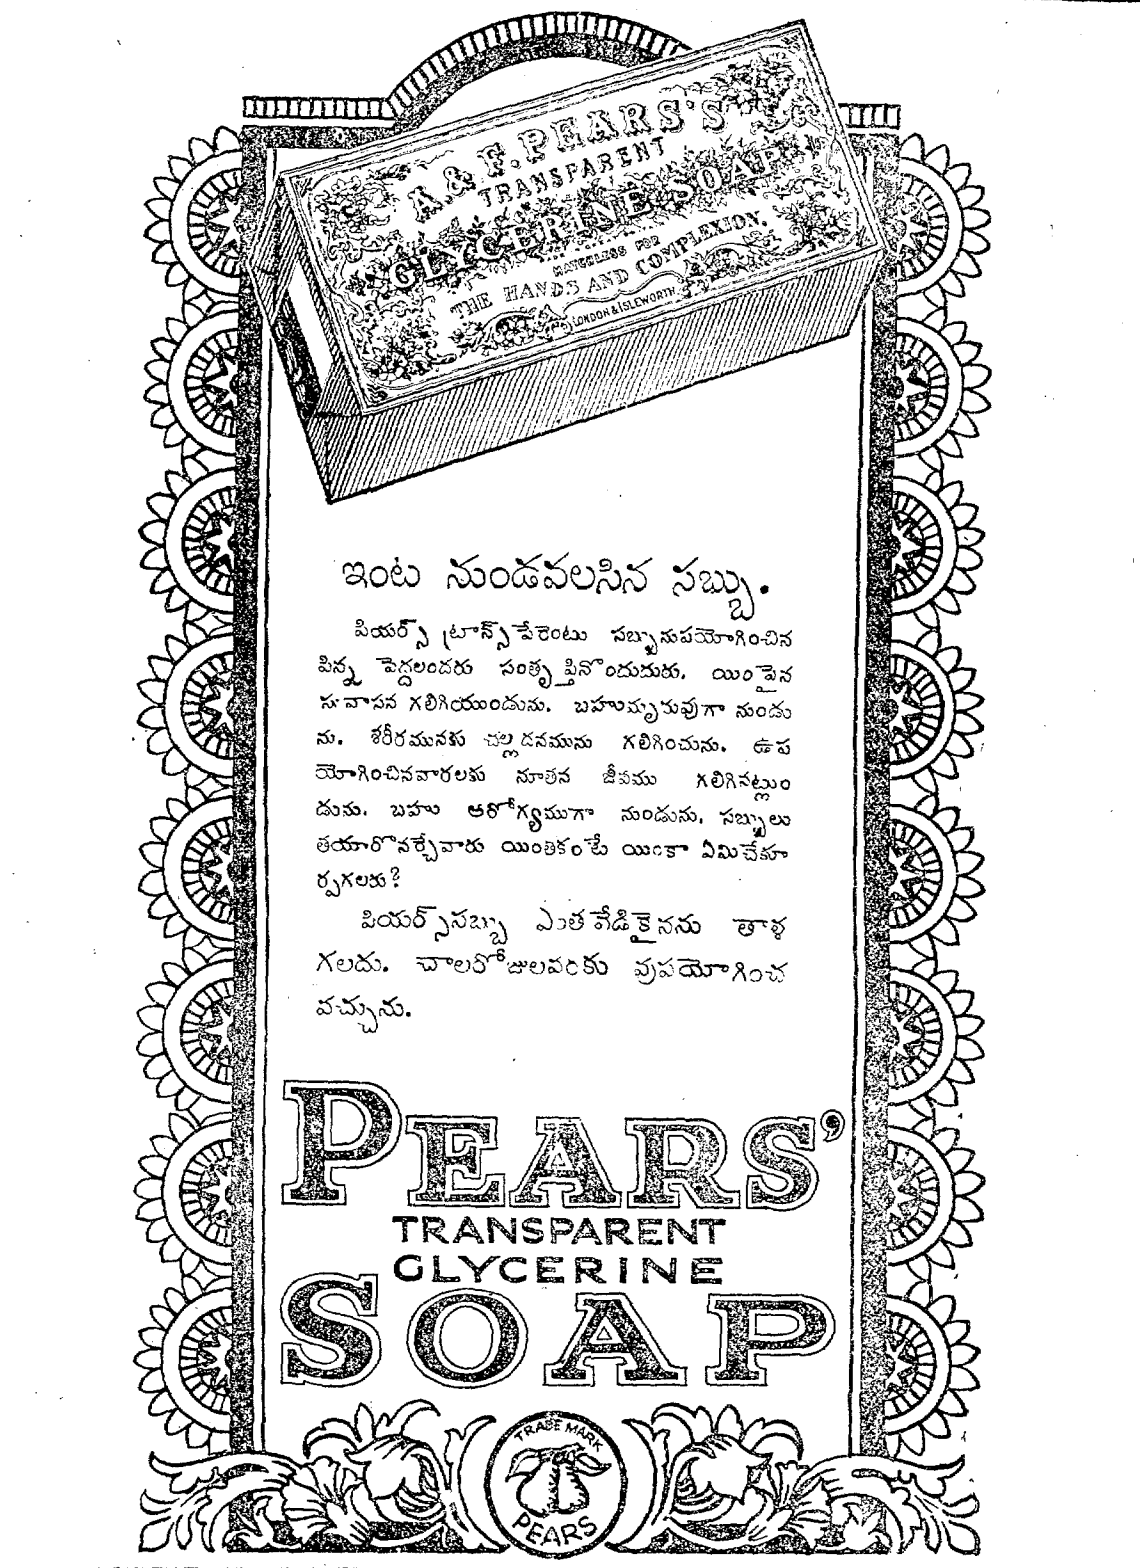 A. & F. PEARS'S
TRANSPARENT
GLYCERINE SOAP
MATCHLESS FOR
THE HANDS AND COMPLEXION.
LONDON & ISLEWORTH
ఇంట నుండవలసిన సబ్బు.
పియర్స్ ట్రాన్స్‌పేరెంటు సబ్బునుపయోగించిన
పిన్న పెద్దలందరు సంతృప్తినొందుదురు. యింపైన
సువాసన గలిగియుండును. బహుమృదువుగా నుండు
ను. శరీరమునకు చల్లదనమును గలిగించును. ఉప
యోగించినవారలకు నూతన జీవము గలిగినట్లుం
డును. బహు ఆరోగ్యముగా నుండును. సబ్బులు
తయారొనర్చేవారు యింతకంటే యింకా ఏమిచేకూ
ర్పగలరు?
పియర్స్‌సబ్బు ఎంత వేడికైనను తాళ
గలదు. చాలరోజులవరకు వుపయోగించ
వచ్చును.
PEARS'
TRANSPARENT
GLYCERINE
SOAP
TRADE MARK
PEARS